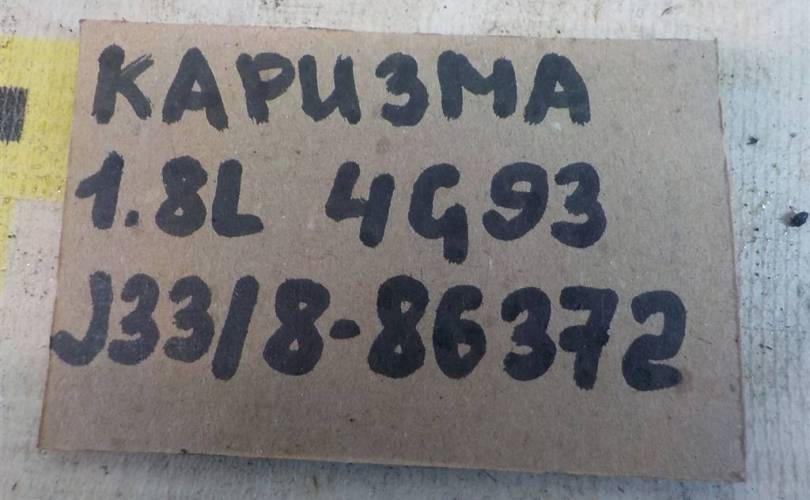 КАРИЗМА
1.8L 4G93
J33/8-86372